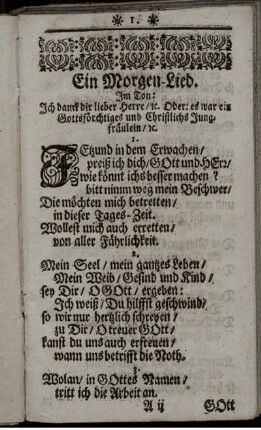 1.
Ein Morgen-Lied.
Im Ton:
Ich danck dir lieber Herre/ ꝛc. Oder: es war ein
Gottsförchtiges und Christlichs Jung-
fräulein/ ꝛc.
1.
JEtzund in dem Erwachen/
preiß ich dich/ GOtt und HErr/
wie könnt ichs besser machen?
bitt nimm weg mein Beschwer/
Die möchten mich betretten/
in dieser Tages-Zeit.
Wollest mich auch erretten/
von aller Fährlichkeit.
2.
Mein Seel/ mein gantzes Leben/
Mein Weib/ Gesind und Kind/
sey Dir/ O GOtt/ ergeben:
Ich weiß/ Du hilffst geschwind/
so wir nur hertzlich schreyen/
zu Dir/ O treuer GOtt/
kanst du uns auch erfreuen/
wann uns betrifft die Noth.
3.
Wolan/ in GOttes Namen/
tritt ich die Arbeit an.
A ij GOtt